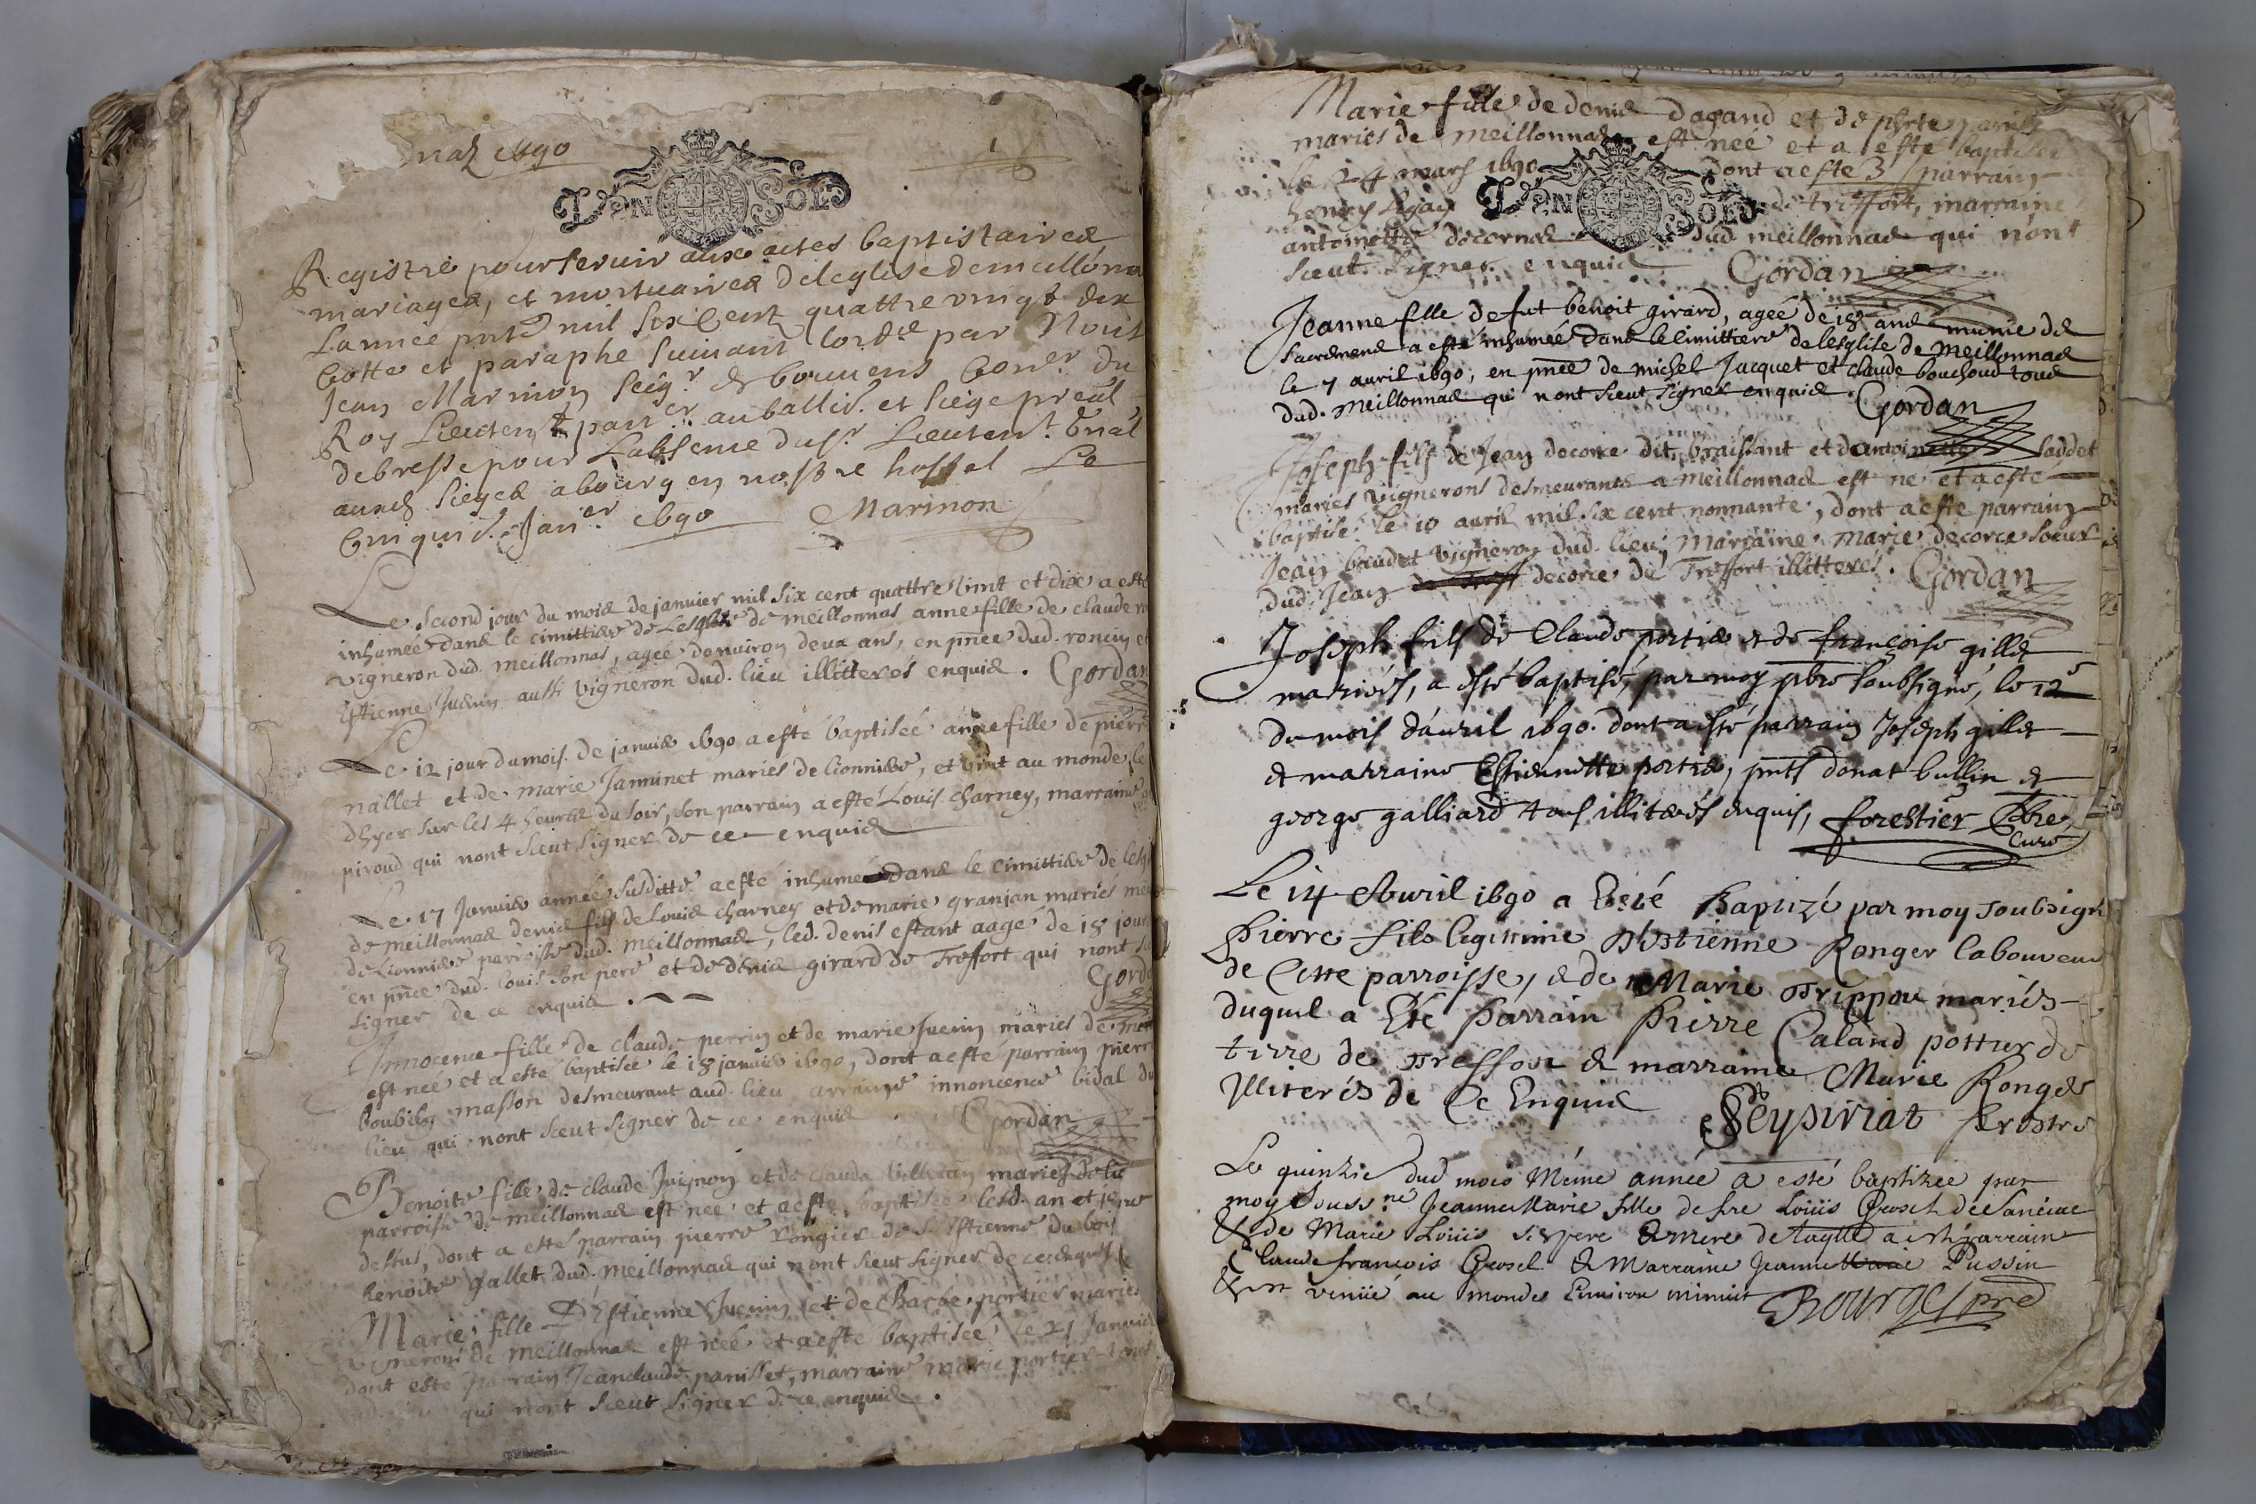 naz 1690
1
DEN SOLS
Registre pour servir aux actes baptistaires
mariages, et mortuaires de leglise de meillona
Lannée pnte mil six Cent quattre vingt dix
Cotte et paraphe suivant lord.e par Nous
Jean Marinon seig.r de bouvens Con.er du
Roy Lieuten.t part.er au balli. et siege pral
de bresse pour Labsence du s.r Lieuten.t gnal
ausd. sieges a bourg en nostre hostel Le
Cinquie. Jan.er 1690 Marinon
Le second jour du mois de janvier mil six cent quattre vint et dix a esté
inhumée dans le cimittiere de Leglise de meillonnas anne fille de claude
vigneron dud. meillonnas, agée denviron deux ans, en pnce dud. roncin et
Estienne Juenin aussi vigneron dud. lieu illitteres enquis. Gordan
Le 12 jour du mois de janvier 1690 a esté baptisée anne fille de pierre
nallet et de marie Janninet mariés de lionniere, et vint au monde le
dhyer sur les 4 heures du soir, son parrain a esté Louis charney, marraine
piroud qui nont sceut signer de ce enquis
Le 17 Janvier année susditte a esté inhumé dans le cimittiere de
de meillonnas denis fils de Louis charney et de marie granjan mariés
de Lionniere parroisse dud. meillonnas, led. denis estant aagé de 18 jour
en pnce dud. louis son pere et de denis girard de Treffort qui nont
signer de ce enquis. Gorda
Innocence fille de claude perrin et de marie Juenin mariés de
est née et a esté baptisée le 18 janvier 1690, dont a esté parrain pierre
boubilly masson desmeurant aud. lieu marraine innoncence bidal du
lieu qui nont sceut signer de ce enquis Gordan
Benoite fille de claude Juignon et de claude mariés de la
parroisse de meillonnas est née et a esté baptisée lesd. an et jour que
dessus, dont a esté parrain pierre rongier de S. Estienne du bois
benoite gallet dud. meillonnas qui nont sceut signer de ce enquis
Marie fille D'Estienne Juenin et de charge portier mariés
vignerons de meillonnas est née et a esté baptisée le 21 Janvier
dont esté parrain Jeanclaude panisset, marraine marie portier
qui nont sceut signer de ce enquis.
Marie fille de denis dagand et de
mariés de meillonnas est née et a esté baptisée
le 24 mars 1690 dont a esté parrain
DEN SOLS
henry ligay de treffort, marraine
antoinette decornas dud. meillonnas qui nont
sceut signer enquis Gordan
Jeanne fille de fut benoit girard, agée de 18 ans munie des
sacremens a esté inhumée dans le cimittiere de lesglise de meillonnas
le 7 avril 1690, en pnce de michel Jacquet et claude bouchoud tous
dud. meillonnas qui nont sceut signer enquis Gordan
Joseph fils de Jean decorce dit braissant et dantoinette soudet
mariés vignerons desmeurants a meillonnas est né et a esté
baptisé le 10 avril mil six cent nonnante, dont a esté parrain
Jean baudet vigneron dud. lieu, marraine marie decorce soeur
dud. Jean decorce de Treffort illitterés. Gordan
Joseph fils de Claude portier et de françoise gillet
mariés, a esté baptisé, par moy pbre soubsigné, le 12e
du mois davril 1690. dont a esté parrain Joseph gillet
et marraine Estiennette portier, pnts donat bullin et
george galliard tous illiterés enquis, forestier Pbre
Curé
Le 14 Avril 1690 a Esté Baptizé par moy soubsigné
Pierre fils legitime d'Estienne Ronger laboureur
de Cette parroisse, & de Marie Trippou mariés
duquel a Eté Parrain Pierre Caland pottier de
terre de Treffort & marraine Marie Ronger
Illiterés de Ce Enquis Seysiriat Prestre
Le quinzie dud mois Même année a esté baptizée par
moy souss.né Jeanne Marie fille de sre Loüis Grosel de Sanciat
& de Marie Loüis se pere & mere de laqlle a esté parrain
Claude françois Grosel & Marraine Jeanne Marie Pussin
& est venüe au monde Environ minuit Bourges pre